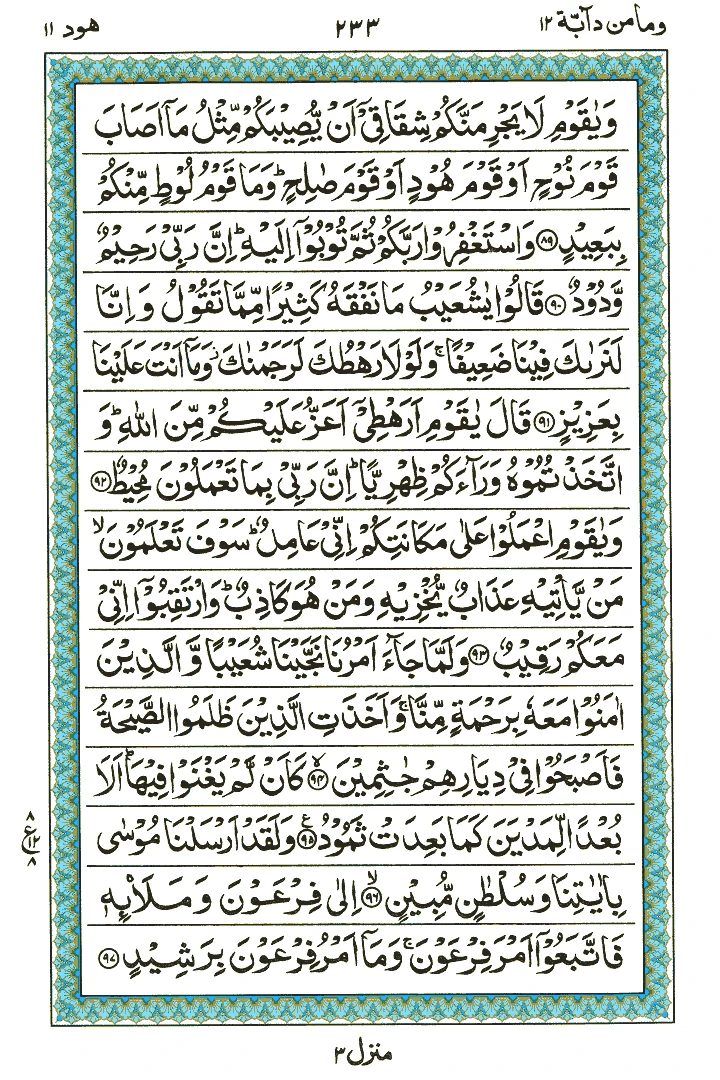 ومامن دآبّة ١٢
٢٣٣
هود ١١
وَيٰقَوْمِ لَا يَجْرِمَنَّكُمْ شِقَاقِيْۤ اَنْ يُّصِيْبَكُمْ مِّثْلُ مَاۤ اَصَابَ
قَوْمَ نُوْحٍ اَوْ قَوْمَ هُوْدٍ اَوْ قَوْمَ صٰلِحٍ ؕ وَمَا قَوْمُ لُوْطٍ مِّنْكُمْ
بِبَعِيْدٍ ﴿٨٩﴾ وَاسْتَغْفِرُوْا رَبَّكُمْ ثُمَّ تُوْبُوْۤا اِلَيْهِ ؕ اِنَّ رَبِّيْ رَحِيْمٌ
وَّدُوْدٌ ﴿٩٠﴾ قَالُوْا يٰشُعَيْبُ مَا نَفْقَهُ كَثِيْرًا مِّمَّا تَقُوْلُ وَ اِنَّا
لَنَرٰىكَ فِيْنَا ضَعِيْفًا ۚ وَلَوْلَا رَهْطُكَ لَرَجَمْنٰكَ ؗ وَمَاۤ اَنْتَ عَلَيْنَا
بِعَزِيْزٍ ﴿٩١﴾ قَالَ يٰقَوْمِ اَرَهْطِيْۤ اَعَزُّ عَلَيْكُمْ مِّنَ اللّٰهِ ؕ وَ
اتَّخَذْتُمُوْهُ وَرَآءَكُمْ ظِهْرِيًّا ؕ اِنَّ رَبِّيْ بِمَا تَعْمَلُوْنَ مُحِيْطٌ ﴿٩٢﴾
وَيٰقَوْمِ اعْمَلُوْا عَلٰى مَكَانَتِكُمْ اِنِّيْ عَامِلٌ ؕ سَوْفَ تَعْلَمُوْنَ ۙ
مَنْ يَّاْتِيْهِ عَذَابٌ يُّخْزِيْهِ وَمَنْ هُوَ كَاذِبٌ ؕ وَارْتَقِبُوْۤا اِنِّيْ
مَعَكُمْ رَقِيْبٌ ﴿٩٣﴾ وَلَمَّا جَآءَ اَمْرُنَا نَجَّيْنَا شُعَيْبًا وَّ الَّذِيْنَ
اٰمَنُوْا مَعَهٗ بِرَحْمَةٍ مِّنَّا ۚ وَاَخَذَتِ الَّذِيْنَ ظَلَمُوا الصَّيْحَةُ
فَاَصْبَحُوْا فِيْ دِيَارِهِمْ جٰثِمِيْنَ ﴿٩٤﴾ كَاَنْ لَّمْ يَغْنَوْا فِيْهَا ؕ اَلَا
بُعْدًا لِّمَدْيَنَ كَمَا بَعِدَتْ ثَمُوْدُ ﴿٩٥﴾ ع وَلَقَدْ اَرْسَلْنَا مُوْسٰى
٨
ع ١٢
٨
بِاٰيٰتِنَا وَ سُلْطٰنٍ مُّبِيْنٍ ﴿٩٦﴾ ۙ اِلٰى فِرْعَوْنَ وَ مَلَا۠ئِهٖ
فَاتَّبَعُوْۤا اَمْرَ فِرْعَوْنَ ۚ وَمَاۤ اَمْرُ فِرْعَوْنَ بِرَشِيْدٍ ﴿٩٧﴾
منزل ٣